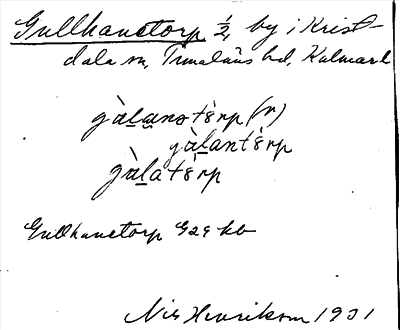 Gullhanetorp 1/2, by i Krist-
dala sn, Tunaläns hd, Kalmar l
gàlanstɛ́rp (n)
gàlantɛ́rp
gàlatɛ́rp
Gullhanetorp G29 kb
Nils Henrikson 1931